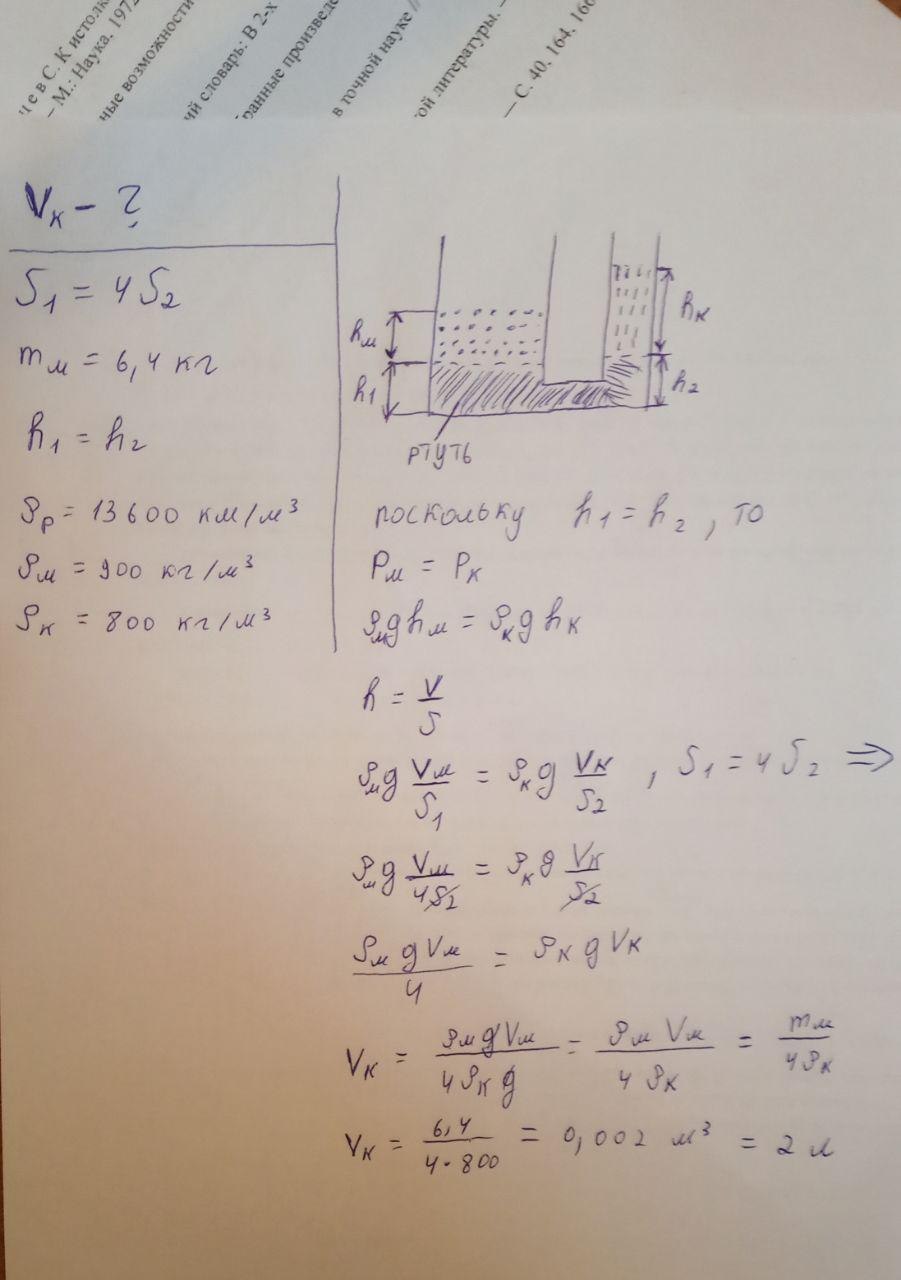 чев С. К истолк
– М.: Наука. 1972
ные возможности
ий словарь: В 2-х
ранные произведе
в точной науке //
ой литературы. –
– С. 40, 164, 166
Vк – ?
S₁ = 4S₂
mм = 6,4 кг
h₁ = h₂
ρр = 13600 км/м³
ρм = 900 кг/м³
ρк = 800 кг/м³
hм
h₁
hк
h₂
ртуть
поскольку h₁ = h₂, то
Pм = Pк
ρмghм = ρкghк
h = V/S
ρмg Vм/S₁ = ρкg Vк/S₂, S₁ = 4S₂ ⇒
ρмg Vм/4S₂ = ρкg Vк/S₂
ρмgVм/4 = ρкgVк
Vк = ρмgVм/4ρкg = ρмVм/4ρк = mм/4ρк
Vк = 6,4/4·800 = 0,002 м³ = 2 л